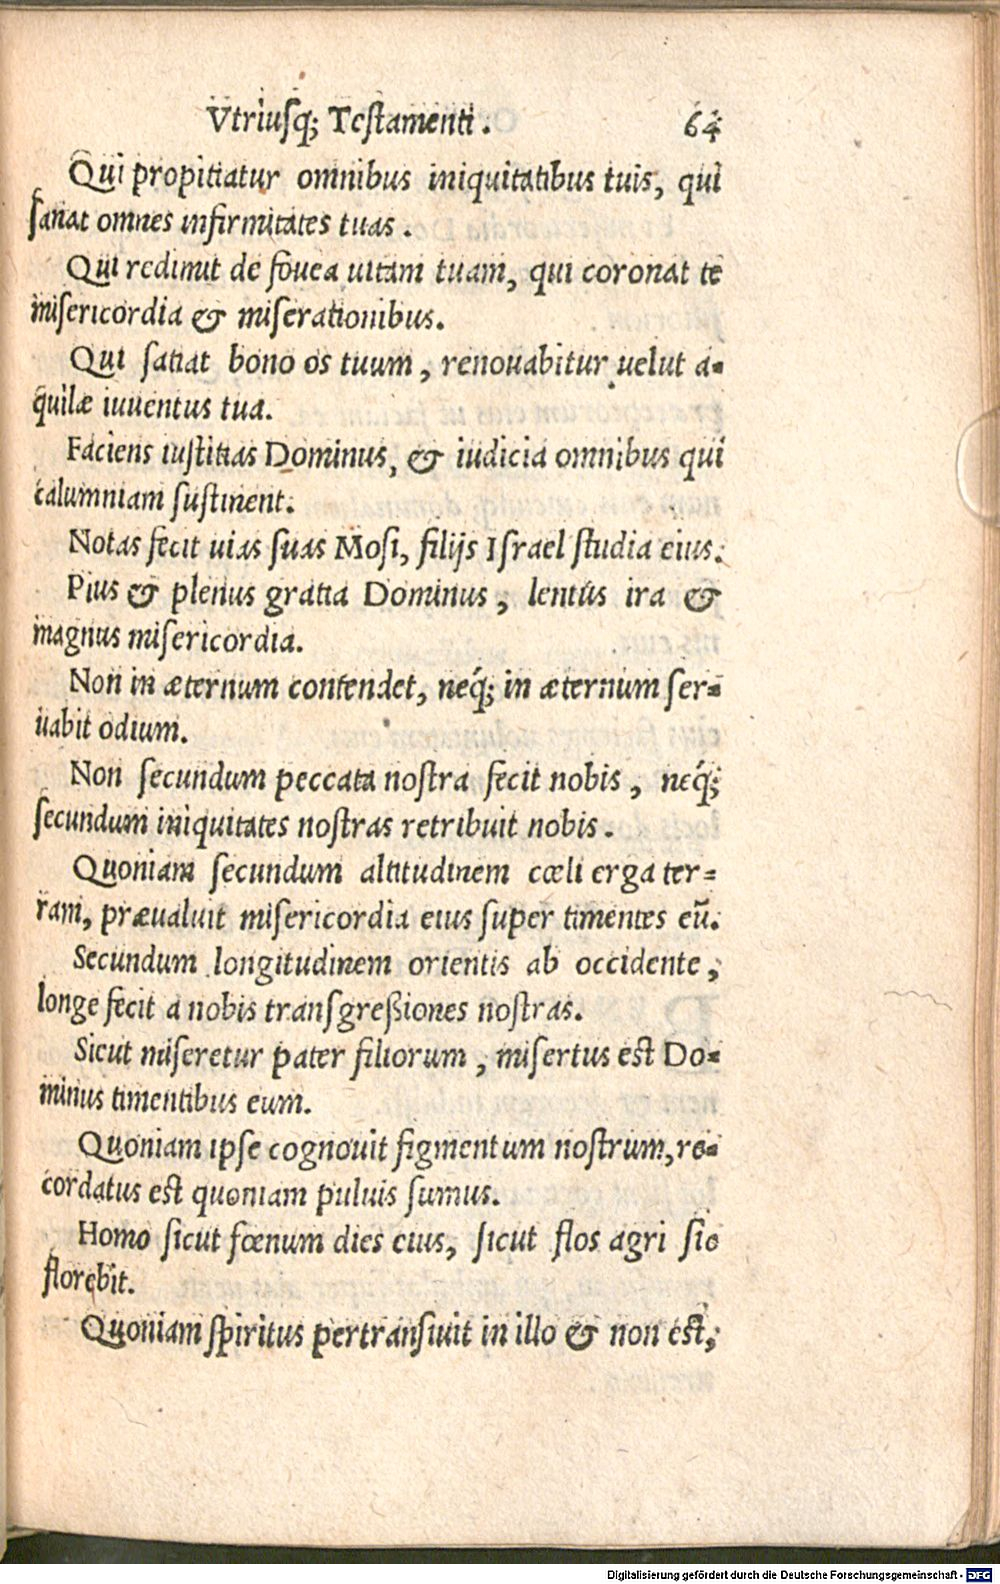 Vtriusq; Testamenti. 64
Qui propitiatur omnibus iniquitatibus tuis, qui
sanat omnes infirmitates tuas.
Qui redimit de fouea uitam tuam, qui coronat te
misericordia & miserationibus.
Qui satiat bono os tuum, renouabitur uelut a-
quilæ iuuentus tua.
Faciens iustitias Dominus, & iudicia omnibus qui
calumniam sustinent.
Notas fecit uias suas Mosi, filijs Israel studia eius.
Pius & plenus gratia Dominus, lentus ira &
magnus misericordia.
Non in æternum contendet, neq́; in æternum ser-
uabit odium.
Non secundum peccata nostra fecit nobis, neq́;
secundum iniquitates nostras retribuit nobis.
Quoniam secundum altitudinem cœli erga ter-
ram, præualuit misericordia eius super timentes eū.
Secundum longitudinem orientis ab occidente,
longe fecit a nobis transgreßiones nostras.
Sicut miseretur pater filiorum, misertus est Do-
minus timentibus eum.
Quoniam ipse cognouit figmentum nostrum, re-
cordatus est quoniam puluis sumus.
Homo sicut fœnum dies eius, sicut flos agri sic
florebit.
Quoniam spiritus pertransiuit in illo & non est,
Digitalisierung gefördert durch die Deutsche Forschungsgemeinschaft - DFG